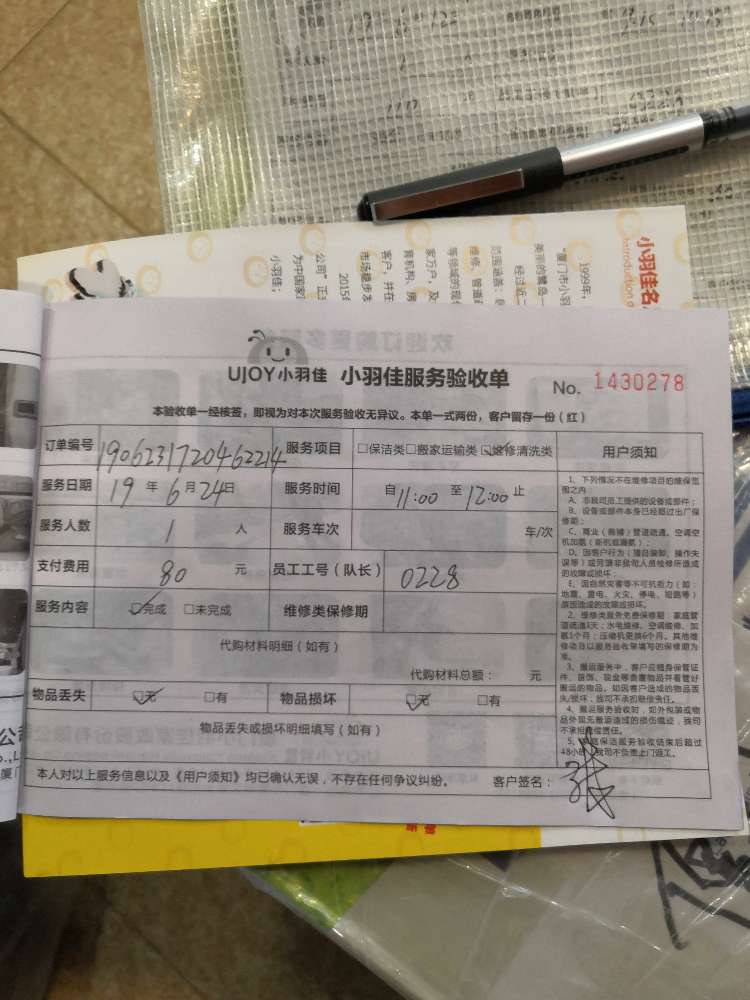 小羽佳名
Introduction o
1999年,
"厦门市小羽
美丽的鹭岛一
经过近二
范围涵盖:
维修、管道
等领域的现
家万户,及
育机构、房
客户,并在
市场稳步发
2015年
公司"正
为中国家
小羽佳;
UJOY小羽佳 小羽佳服务验收单 No. 1430278
本验收单一经核签,即视为对本次服务验收无异议。本单一式两份,客户留存一份(红)
订单编号 190623172046 2214 服务项目 □保洁类□搬家运输类☑维修清洗类 用户须知
服务日期 19 年 6 月 24 日 服务时间 自 11:00 至 12:00 止
服务人数 1 人 服务车次 车/次
支付费用 80 元 员工工号(队长) 0228
服务内容 ☑完成 □未完成 维修类保修期
代购材料明细(如有)
代购材料总额: 元
物品丢失 ☑无 □有 物品损坏 ☑无 □有
物品丢失或损坏明细填写(如有)
本人对以上服务信息以及《用户须知》均已确认无误,不存在任何争议纠纷。 客户签名: 张
1、下列情况不在维修项目的维保范
围之内:
A、非我司员工提供的设备或部件;
B、设备或部件本身已经超过出厂保
修期;
C、商业(商铺)管道疏通、空调空
机加氨(新机或漏氨);
D、因客户行为(擅自装卸、操作失
误等)或另请非我司人员检修所造成
的故障或损坏;
E、因自然灾害等不可抗力(如:
地震、雷电、火灾、停电、短路等)
原因造成的故障或损坏。
2、维修类服务免费保修期:家庭管
道疏通3天;水电维修、空调维修、加
氨1个月;压缩机更换6个月。其他维
修项目以服务验收单填写的保修期为
准。
3、搬运服务中,客户应随身保管证
件、首饰、现金等贵重物品并看管好
搬运的物品。如因客户造成的物品丢
失/损坏,我司不承担赔偿责任。
4、搬运服务验收时,如外包装或物
品外观无搬运造成的损伤痕迹,我司
不承担赔偿责任。
5、家庭保洁服务验收结束后超过
48小时,我司不负责上门返工。